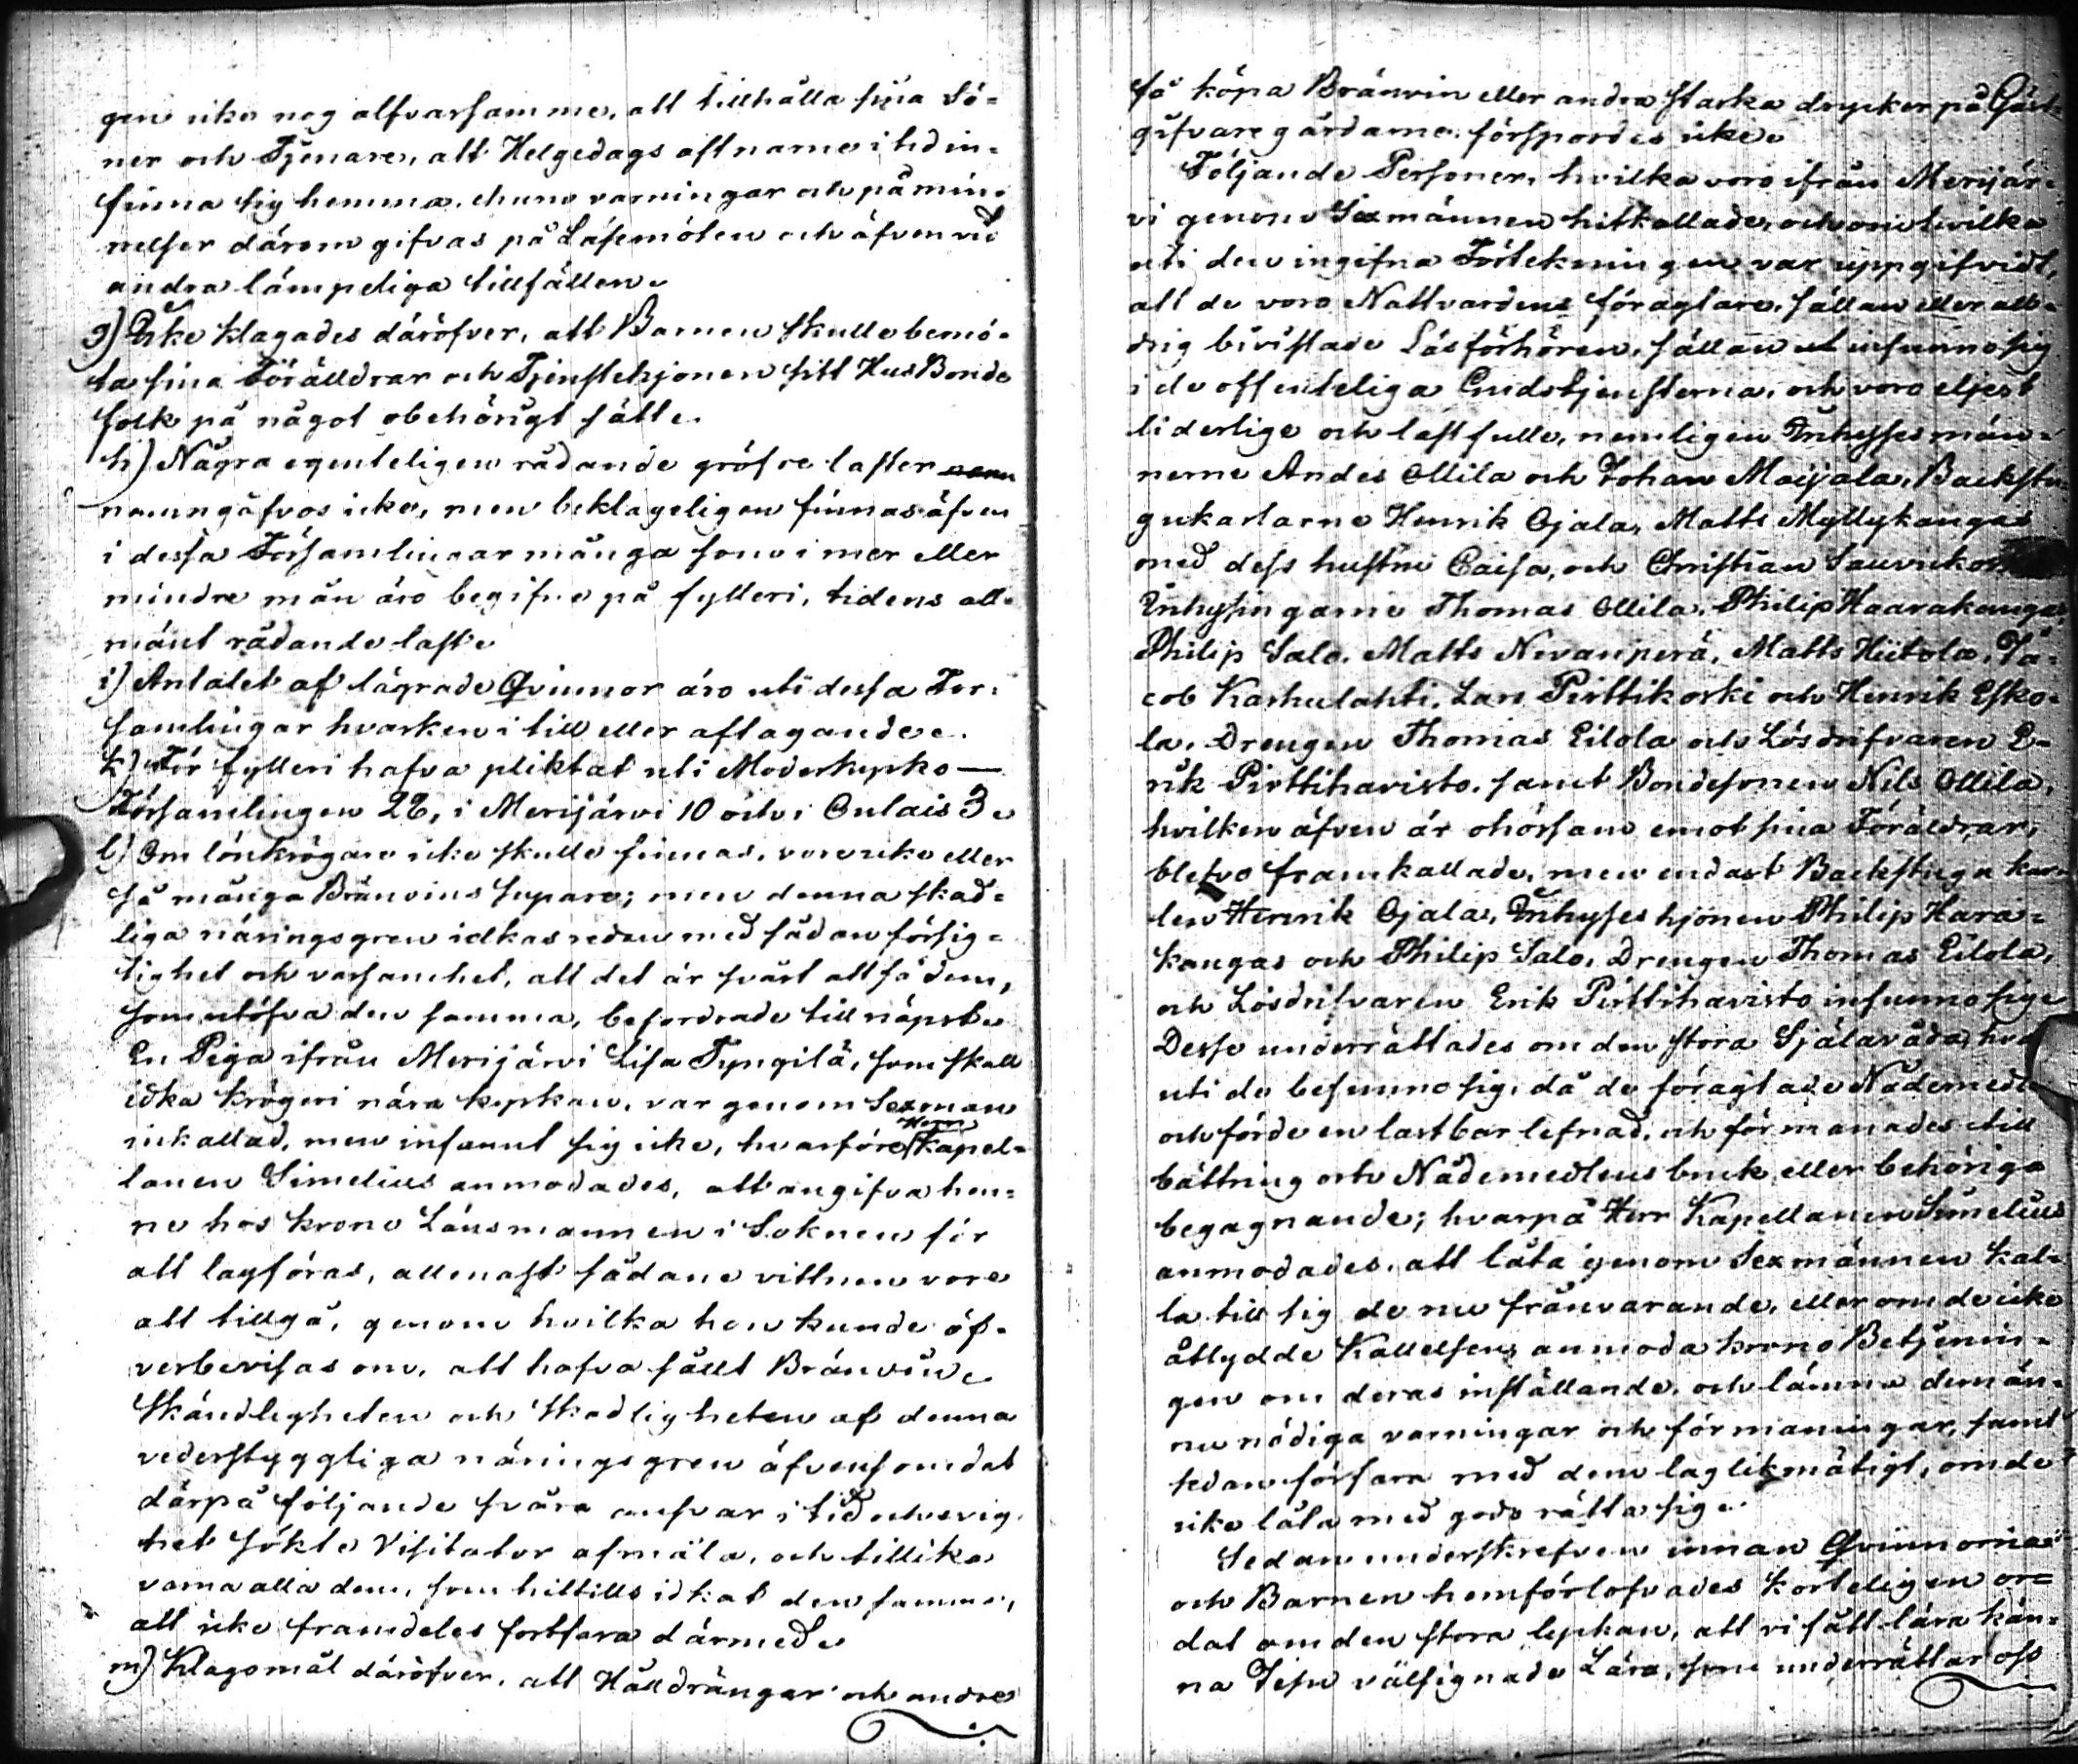 gen icke nog alfvarsamme, att tillhålla sina Sö-
ner och Tjenare, att Helgedags aftnarne i tid in-
finna sig hemma, ehuru varningar och påmin-
nelser därom gifvas på Läsemöten och äfven vid
andra lämpeliga tillfällen.
g) Icke klagades däröfver, att Barnen skulle bemö-
ta sina Föräldrar och Tjenstehjonen sitt HusBonde
folk på något obehörigt sätt.
h) Några egenteligen rådande gröfre laster
namngåfvos icke, men beklageligen finnas äfven
i dessa Församlingar många som i mer eller
mindre mån äro begifne på fylleri, tidens all-
mänt rådande last.
i) Antalet af lägrade Qvinnor äro uti dessa För-
samlingar hvarken i till eller aftagande.
k) För fylleri hafva pliktat uti Moderkyrko-
Församlingen 22, i Merijärvi 10 och i Oulais 3.
l) Om lönkrögare icke skulle finnas, vore icke eller
så många Bränvins supare; men denna skad-
liga näringsgren idkas redan med sådan försig-
tighet och varsamhet, att det är svårt att få dem,
som utöfva den samma, befordrade till näpst.
En Piga ifrån Merijärvi Lisa Tyngilä, som skall
idka krögeri nära kyrkan, var genom Sexman
inkallad, men infannt sig icke, hvarföre Herr Kapel-
lanen Simelius anmodades, att angifva hen-
ne hos krono Länsmannen i Soknen för
att lagföras, allenast sådane vittnen vore
att tillgå, genom hvilka hon kunde öf-
verbevisas om, att hafva sålt Bränvin.
Skändligheten och skadligheten af denna
vederstyggliga näringsgren äfvensom det
därpå följande svåra ansvar i tid och evig-
het sökte Visitator afmåla, och tillika
varna alla dem, som hittills idkat den samma,
att icke framdeles fortfara därmed.
m) Klagomål däröfver, att Hålldrängar och andre
få köpa Bränvin eller andra starka drycker på Gäst-
gifvaregårdarne, förspordes icke.
Följande Personer, hvilka voro ifrån Merijär-
vi genom Sexmännen hitkallade, och om hvilka
uti den ingifna Förtekningen var uppgifvidt,
att de voro Nattvardens föraktare, sällan eller all-
drig bivistade Läsförhören, sällan infunno sig
i de offenteliga Gudstjensterna, och voro eljest
liderlige och lastfulle, nemligen Inhysesmän-
nerne Andes Ollila och Johan Maijala, Backstu-
gukarlarne Henrik Ojala, Matts Myllykangas
med dess hustru Caisa, och Christian
Inhysingarne Thomas Ollila, Philip Haarakangas,
Philip Salo, Matts Nevanperä, Matts Hietola, Ja-
cob Karhulahti, Lars Pirttikoski och Henrik Esko-
la, Drengen Thomas Eilola och Lösdrifvaren E-
rik Pirttiharisto, samt Bondesonen Nils Ollila,
hvilken äfven är ohörsam emot sina Föräldrar,
blefvo framkallade, men endast Backstugu kar-
len Henrik Ojala, Inhyses hjonen Philip Hara-
kangas och Philip Salo, Drengen Thomas Eilola,
och Lösdrifvaren Erik Pirttiharisto infunno sig.
Desse underrättades om den stora Själavåda, hvar
uti de befunno sig, då de föragtade Nådemedlen
och förde en lastbar lefnad, och förmanades till
bättring och Nådemedlens bruk eller behöriga
begagnande; hvarpå Herr Kapellanen Simelius
anmodades, att låta genom Sexmännen kal-
la till sig de nu frånvarande, eller om de icke
åtlydde Kallelsen, anmoda krono Betjenin-
gen om deras inställande, och lämna dem än-
nu nödiga varningar och förmaningar, samt
sedan försara med dem laglikmätigt, om de
icke låta med godo rätta sig.
Sedan underskrefven innan Qvinnorna
och Barnen hemförlofvades korteligen or-
dat om den stora lyckan, att vi fått lära kän-
na Jesu välsignade Lära, som underrättar oss